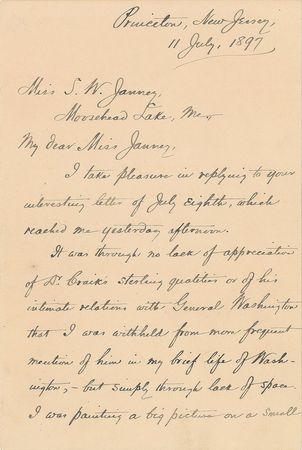 Princeton, New Jersey,
11 July, 1897
Miss S. W. Janney,
Moosehead Lake, Me.
My dear Miss Janney,
I take pleasure in replying to your
interesting letter of July eighth, which
reached me yesterday afternoon.
It was through no lack of appreciation
of Dr Craik's sterling qualities or of his
intimate relations with General Washington
that I was withheld from more frequent
mention of him in my brief life of Wash-
ington,- but simply through lack of space.
I was painting a big picture on a small